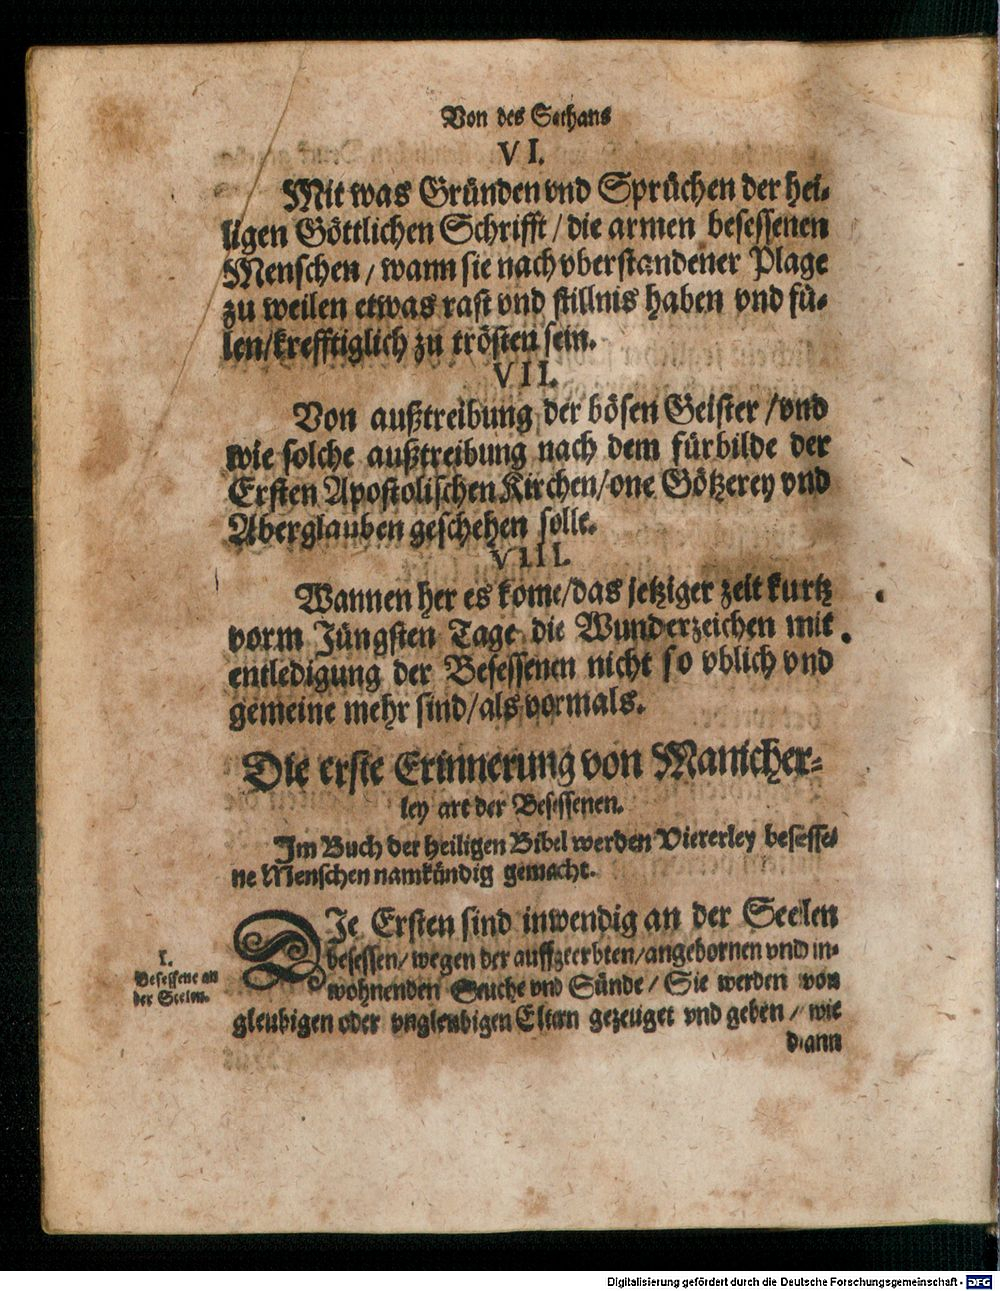 Von des Sathans
VI.
Mit was Gründen vnd Sprüchen der hei-
ligen Göttlichen Schrifft / die armen besessenen
Menschen / wann sie nach vberstandener Plage
zu weilen etwas rast vnd stillnis haben vnd fü-
len/krefftiglich zu trösten sein.
VII.
Von außtreibung der bösen Geister / vnd
wie solche außtreibung nach dem fürbilde der
Ersten Apostolischen Kirchen/one Götzerey vnd
Aberglauben geschehen solle.
VIII.
Wannen her es kome/das jetziger zeit kurtz
vorm Jüngsten Tage die Wunderzeichen mit
entledigung der Besessenen nicht so vblich vnd
gemeine mehr sind/als vormals.
Die erste Erinnerung von Manicher-
ley art der Besessenen.
Im Buch der heiligen Bibel werden Viererley besesse-
ne Menschen namkündig gemacht.
DIe Ersten sind inwendig an der Seelen
besessen/ wegen der auffgeerbten/angebornen vnd in-
wohnenden Seuche vnd Sünde / Sie werden von
gleubigen oder vngleubigen Eltern gezeuget vnd geben / wie
dann
I.
Besessene an
der Seelen.
Digitalisierung gefördert durch die Deutsche Forschungsgemeinschaft - DFG